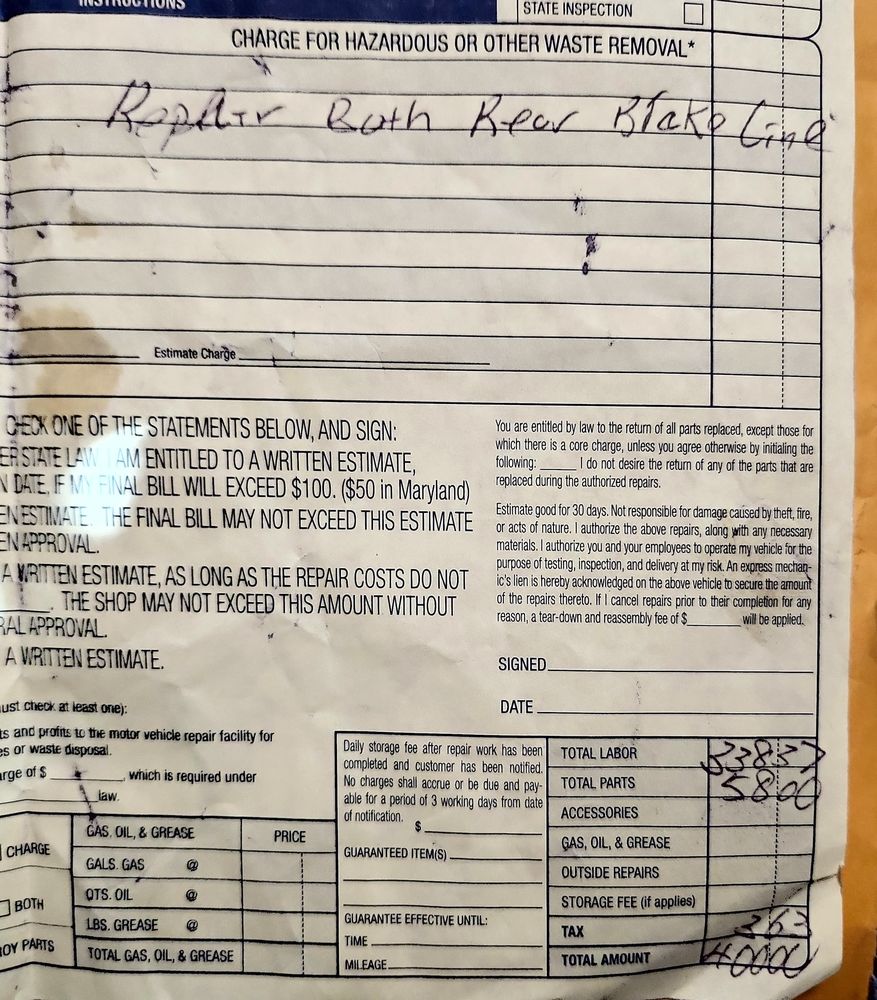 INSTRUCTIONS
STATE INSPECTION
CHARGE FOR HAZARDOUS OR OTHER WASTE REMOVAL*
Repair Both Rear Brake Line
Estimate Charge
CHECK ONE OF THE STATEMENTS BELOW, AND SIGN:
ER STATE LAW I AM ENTITLED TO A WRITTEN ESTIMATE,
N DATE, IF MY FINAL BILL WILL EXCEED $100. ($50 in Maryland)
EN ESTIMATE. THE FINAL BILL MAY NOT EXCEED THIS ESTIMATE
EN APPROVAL.
A WRITTEN ESTIMATE, AS LONG AS THE REPAIR COSTS DO NOT
. THE SHOP MAY NOT EXCEED THIS AMOUNT WITHOUT
RAL APPROVAL.
A WRITTEN ESTIMATE.
ust check at least one):
ts and profits to the motor vehicle repair facility for
es or waste disposal.
arge of $ , which is required under
law.
You are entitled by law to the return of all parts replaced, except those for
which there is a core charge, unless you agree otherwise by initialing
following: I do not desire the return of any of the parts that are
replaced during the authorized repairs.
Estimate good for 30 days. Not responsible for damage caused by theft, fire,
or acts of nature. I authorize the above repairs, along with any necessary
materials. I authorize you and your employees to operate my vehicle for the
purpose of testing, inspection, and delivery at my risk. An express mechan-
ic's lien is hereby acknowledged on the above vehicle to secure the amount
of the repairs thereto. If I cancel repairs prior to their completion for any
reason, a tear-down and reassembly fee of $ will be applied.
SIGNED
DATE
CHARGE
BOTH
OY PARTS
GAS, OIL, & GREASE PRICE
GALS. GAS @
QTS. OIL @
LBS. GREASE @
TOTAL GAS, OIL, & GREASE
Daily storage fee after repair work has been
completed and customer has been notified.
No charges shall accrue or be due and pay-
able for a period of 3 working days from date
of notification.
$
GUARANTEED ITEM(S)
GUARANTEE EFFECTIVE UNTIL:
TIME
MILEAGE
TOTAL LABOR 338 37
TOTAL PARTS 58 00
ACCESSORIES
GAS, OIL, & GREASE
OUTSIDE REPAIRS
STORAGE FEE (if applies)
TAX 3 63
TOTAL AMOUNT 400 00